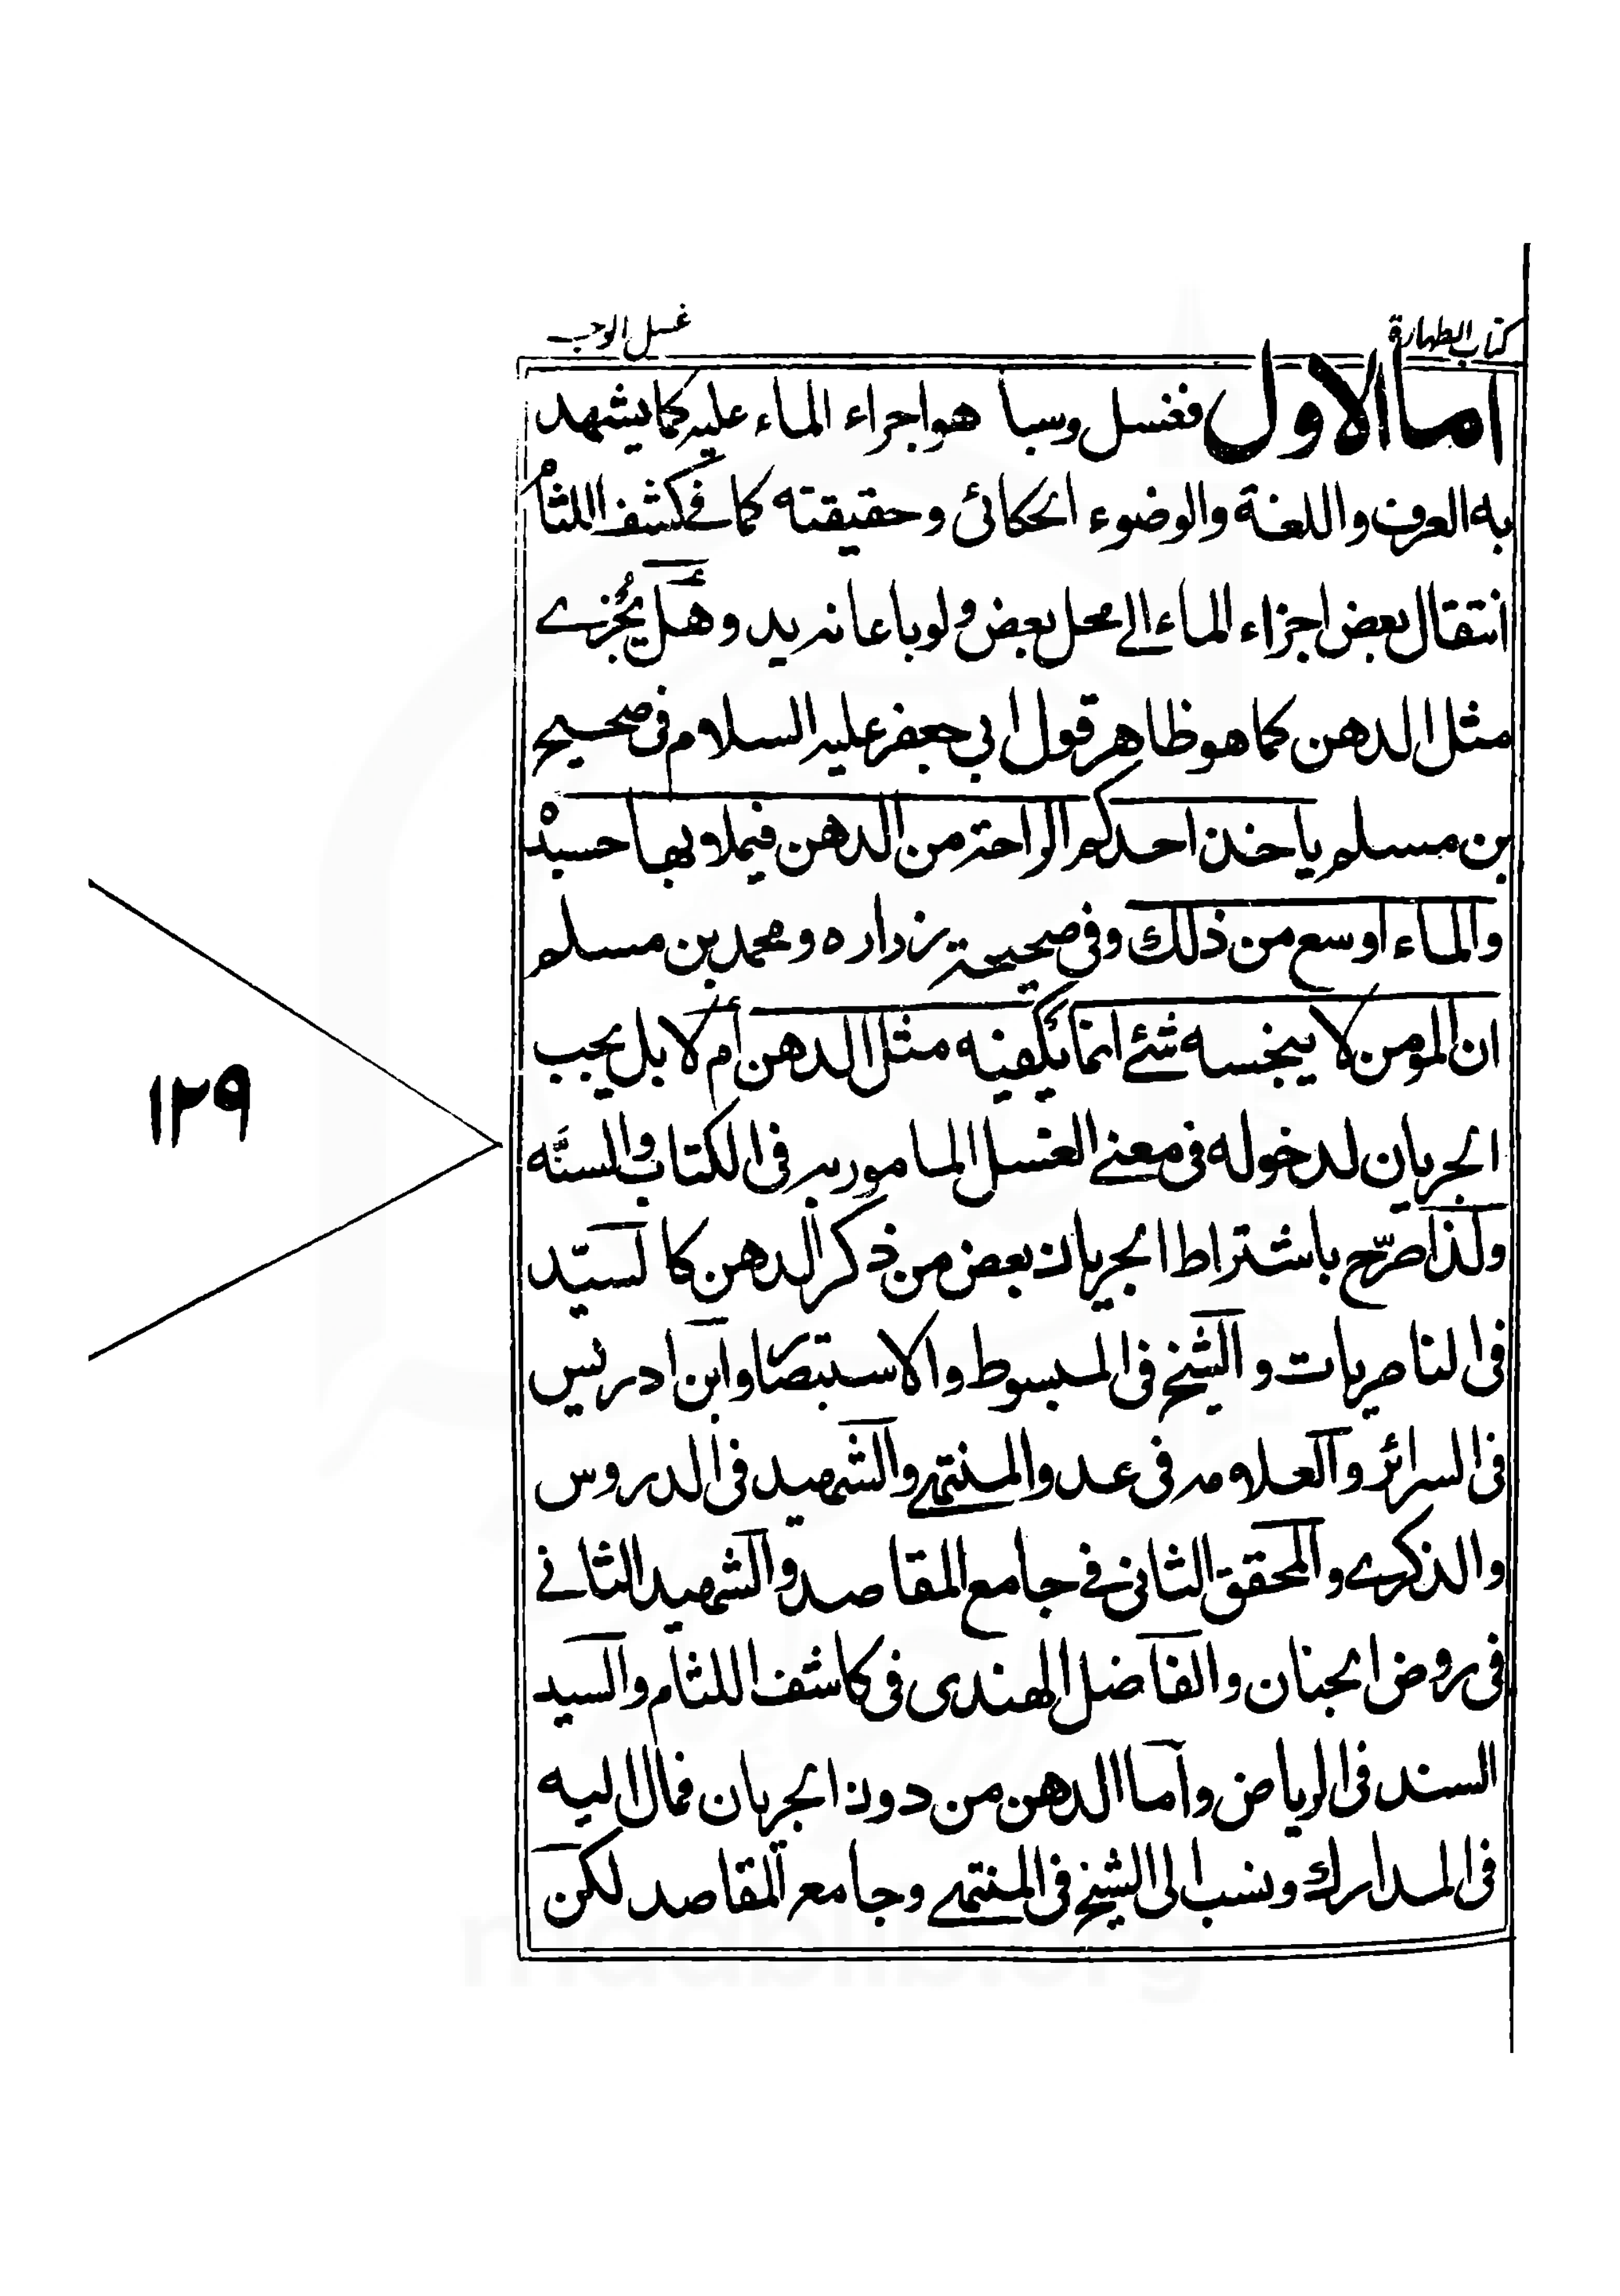 كتاب الطهارة
غسل الوجه
اما الاول فغسل وسبا هو اجراء الماء عليه كما يشهد
به العرف واللغة والوضوء الحكائى وحقيقته كما فے كشف اللثام
انتقال بعض اجزاء الماء الے محل بعض ولو باعانه يد وهل يُجزے
مثل الدهن كما هو ظاهر قول ابي جعفر عليه السلام فى صحيح
بن مسلم ياخذ احدكم الراحة من الدهن فيملاء بها جسده
والماء اوسع من ذلك وفى صحيحة زراره ومحمد بن مسلم
ان المومن لا ينجسه شئے انما يكفيه مثل الدهن أم لا بل يجب
الجريان لدخوله فى معنے الغسل المامور به فى الكتاب والسنَّه
ولذا صرّح باشتراط الجريان بعض من ذكر الدهن كالسيّد
فى الناصريات والشيخ فى المبسوط والاستبصار وابن ادريس
فى السرائر والعلامه فى عد والمنتهے والشهيد فى الدروس
والذكرے والمحقق الثانى فے جامع المقاصد والشهيد الثانے
فى روض الجنان والفاضل الهندى فى كاشف اللثام والسيد
السند فى الرياض وأما الدهن من دون الجريان فمال اليه
فى المدارك ونسب الى الشيخ فى المنتهے وجامع المقاصد لكن
١٢٩
maablib.org